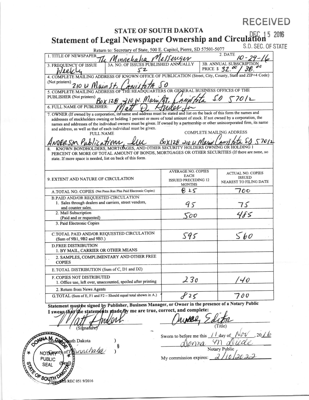 RECEIVED
DEC 15 2016
S.D. SEC. OF STATE
STATE OF SOUTH DAKOTA
Statement of Legal Newspaper Ownership and Circulation
Return to: Secretary of State, 500 E. Capitol, Pierre, SD 57501-5077
1. TITLE OF NEWSPAPER The Minnehaha Messenger
2. DATE 10-29-16
3. FREQUENCY OF ISSUE Weekly
3A. NO. OF ISSUES PUBLISHED ANNUALLY 52
3B. ANNUAL SUBSCRIPTION PRICE $
4. COMPLETE MAILING ADDRESS OF KNOWN OFFICE OF PUBLICATION (Street, City, County, State and ZIP+4 Code) (Not printers)
5. COMPLETE MAILING ADDRESS OF THE HEADQUARTERS OF GENERAL BUSINESS OFFICES OF THE PUBLISHER (Not printers)
6. FULL NAME OF PUBLISHER: Matt D.
7. OWNER (If owned by corporation, its name and address must be stated and also immediately thereunder the names and addresses of stockholders owning or holding 1 percent or more of total amount of stock.
FULL NAME
COMPLETE MAILING ADDRESS
8. KNOWN BONDHOLDERS, MORTGAGES, AND OTHER SECURITY HOLDERS OWNING OR HOLDING 1 PERCENT OR MORE OF TOTAL AMOUNT OF BONDS, MORTGAGES OR OTHER SECURITIES (If there are none, so state. If more space is needed, list on back of this form.
9. EXTENT AND NATURE OF CIRCULATION
AVERAGE NO. COPIES EACH ISSUED PRECEDING 12 MONTHS
ACTUAL NO. COPIES ISSUED NEAREST TO FILING DATE
A. TOTAL NO. COPIES (Net Press Run Plus Paid Electronic Copies) 825 700
B. PAID AND/OR REQUESTED CIRCULATION
1. Sales through dealers and carriers, street vendors, and counter sales. 95 75
2. Mail Subscription (Paid and or requested) 500 485
3. Paid Electronic Copies
C. TOTAL PAID AND/OR REQUESTED CIRCULATION (Sum of 9B1, 9B2 and 9B3.) 595 560
D. FREE DISTRIBUTION
1. BY MAIL, CARRIER OR OTHER MEANS
2. SAMPLES, COMPLIMENTARY AND OTHER FREE COPIES
E. TOTAL DISTRIBUTION (Sum of C, D1 and D2)
F. COPIES NOT DISTRIBUTED
1. Office use, left over, unaccounted, spoiled after printing 230 140
2. Return from News Agents
G. TOTAL (Sum of E, F1 and F2 - Should equal total shown in A.) 825 700
Statement must be signed by Publisher, Business Manager, or Owner in the presence of a Notary Public
I swear that the statements made by me are true, correct, and complete:
(Signature)
(Title)
South Dakota
Minnehaha
Sworn to before me this 11 day of Nov 2016
Donna M
Notary Public
My commission expires: 2/10/2022
NOTARY
PUBLIC
SEAL
DONNA M.
SOUTH DAKOTA
REC 051 8/2016